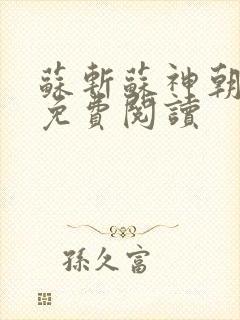 蘇斬蘇神朝
免費閱讀
孫久富